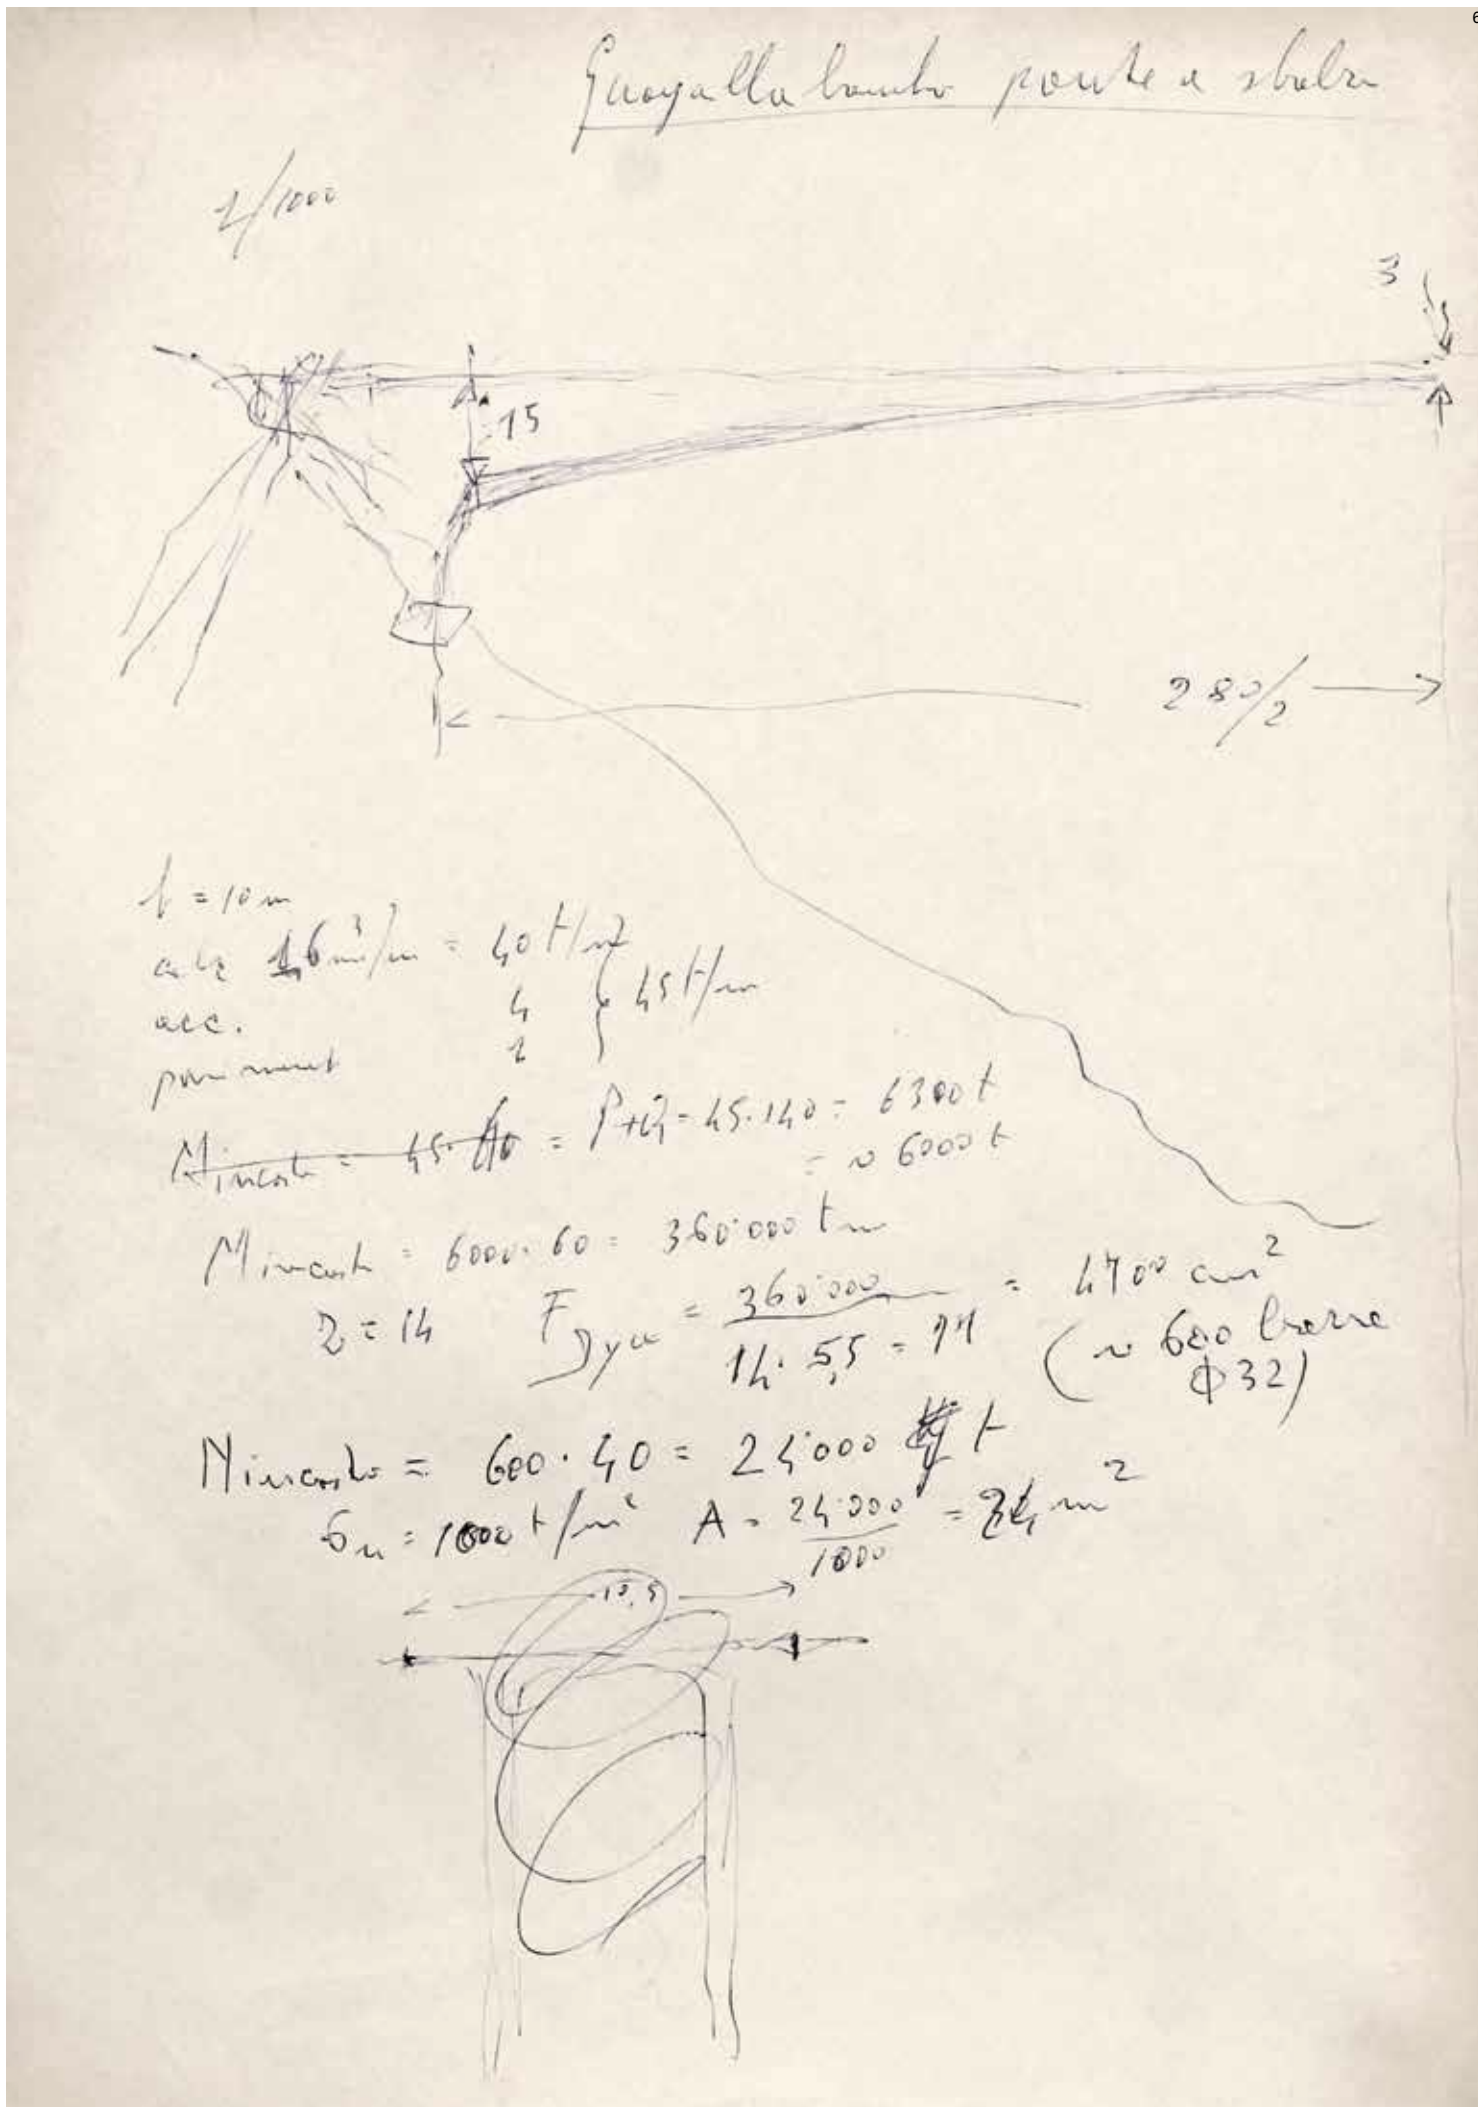 Guayallabamba ponte a sbalzo
1/1000
3
15
280/2
b = 10 m
calc 16 m³/m = 40 t/m
acc. 4 } 45 t/m
paviment 1
Mincastr = 45. = P+Q = 45.140 = 6300 t
= ~ 6000 t
Mincastr = 6000.60 = 360'000 tm
Z = 14 F Dyw = 360'000 / 14. 5,5 = 77 = 4700 cm²
(~ 600 barre
ф32)
Nincastro = 600.40 = 24'000 t
σn = 1000 t/m² A = 24'000 / 1000 = 24 m²
10,5